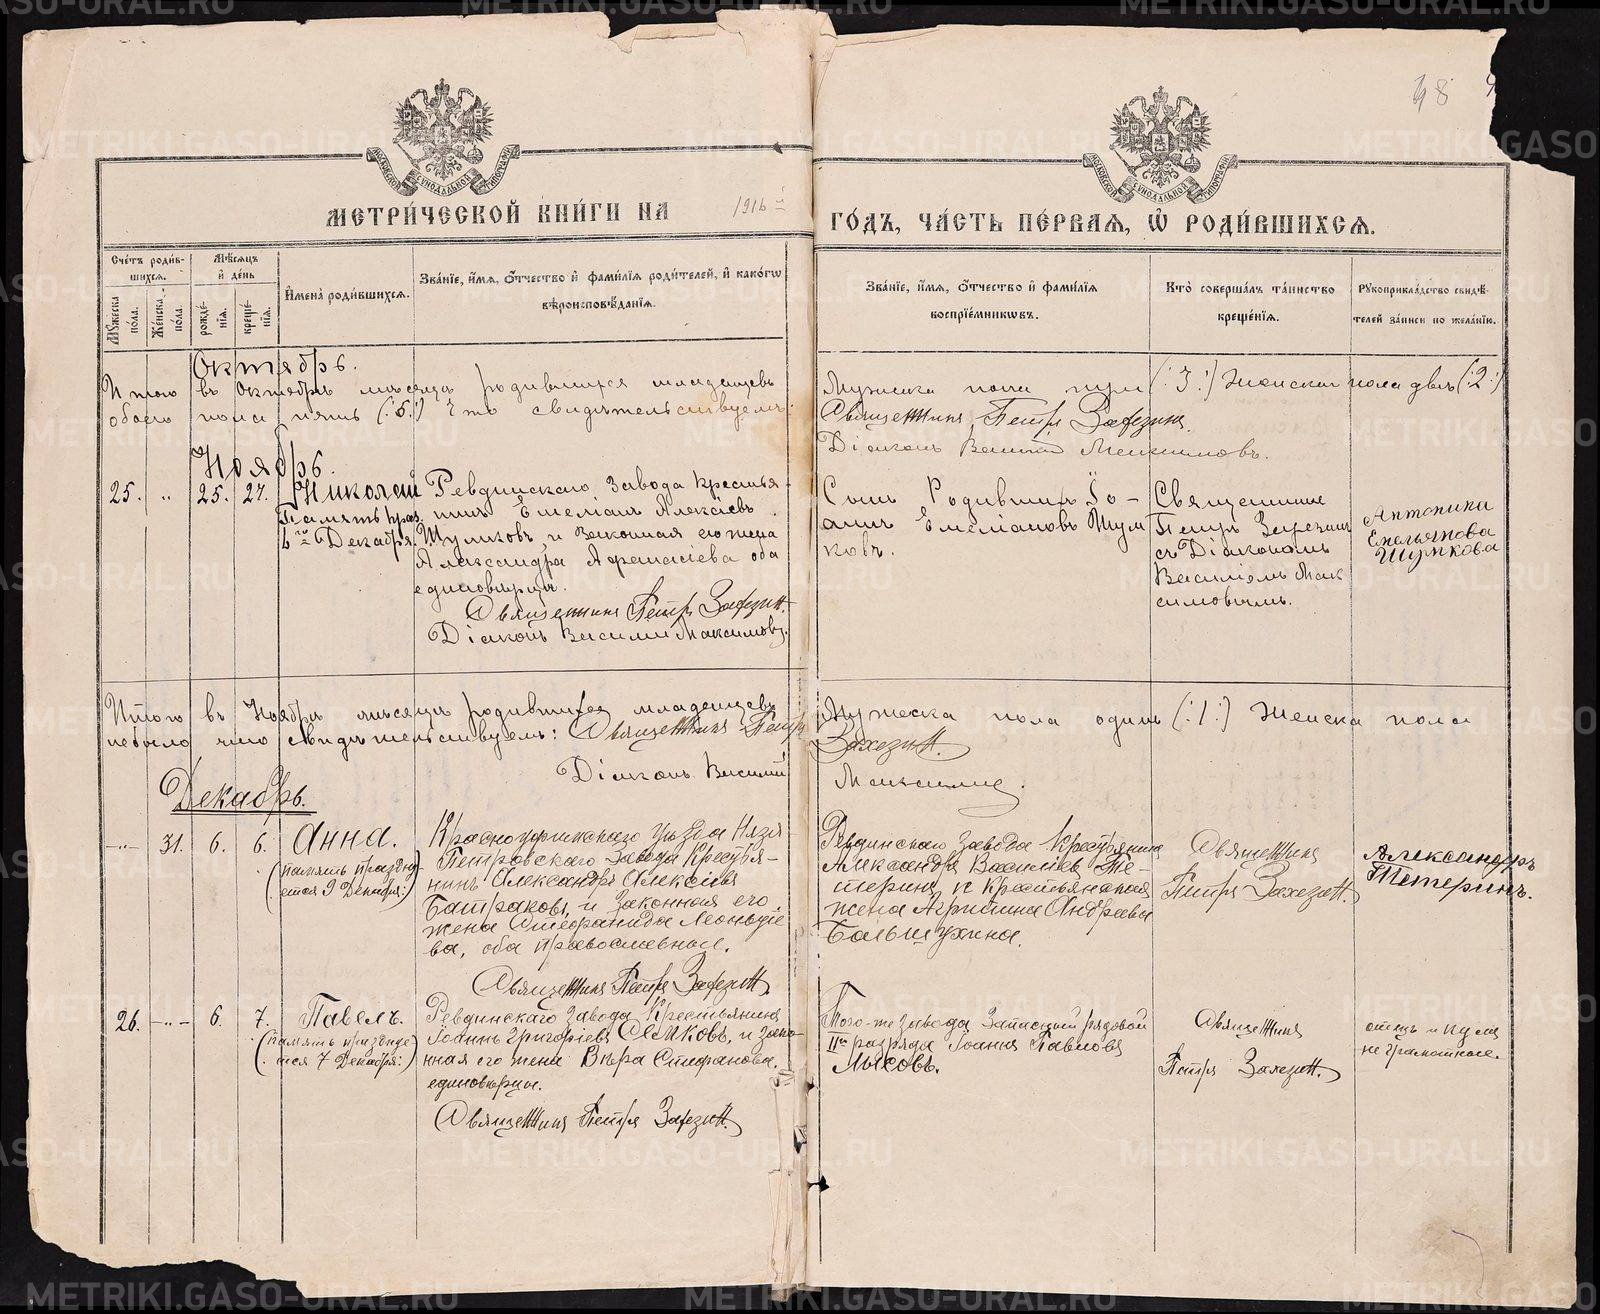 48
МЕТРИ́ЧЕСКОЙ КНИ́ГИ НА 1916 й
ГО́ДЪ, ЧА́СТЬ ПЕ́РВАЯ, Ѡ҆ РОДИ́ВШИХСЯ.
Сче́тъ роди́вшихся.
Му́жеска по́ла.
Же́нска по́ла.
Мѣ́сяцъ и҆ де́нь
рожде́нїя.
креще́нїя.
И҆мена̀ роди́вшихся.
Зва́нїе, и҆́мя, ѻ҆́тчество и҆ фами́лїя роди́телей, и҆ како́гѡ
вѣроисповѣ́данїя.
Зва́нїе, и҆́мя, ѻ҆́тчество и҆ фами́лїя
воспрїе́мникѡвъ.
Кто̀ соверша́лъ та́инство
креще́нїя.
Рукоприкла́дство свидѣ́-
телей за́писи по жела́нїю.
Октябрь.
Итого въ Октябрѣ мѣсяцѣ родившихся младенцевъ
обоего пола пять (:5:) Что свидѣтельствуемъ:
Мужска пола три (:3:) Женскаго пола двѣ (:2:)
Священникъ Петръ Захезинъ
Діаконъ Василій Максимовъ.
Ноябрь.
25. „ 25. 27. Николай
Память праз.
6го Декабря.
Ревдинскаго Завода Крестья-
нинъ Емеліанъ Алексіевъ
Шумковъ, и Законная его жена
Александра Афанасіева оба
единовѣрцы.
Священникъ Петръ Захезинъ.
Діаконъ Василій Максимовъ.
Сынъ Родившаго Іо-
аннъ Емеліановъ Шум
ковъ.
Священникъ
Петръ Захезинъ
съ Діакономъ
Василіемъ Мак
симовымъ.
Антонина
Емельянова
Шумкова
Итого въ Ноябрѣ мѣсяцѣ родившихся младенцевъ
небыло что свидѣтельствуемъ: Священникъ Петръ
Діаконъ Василій
Мужеска пола одинъ (:1:) Женска пола
Захезинъ.
Максимовъ.
Декабрь.
-„- 31. 6. 6. Анна.
(память праздну
ется 9 Декабря:)
Красноуфимскаго уѣзда Нязе
Петровскаго Завода Крестья-
нинъ Александръ Алексіевъ
Батраковъ, и Законная его
жена Стефанида Леонтіе
ва, оба православные.
Священникъ Петръ Захезинъ.
Ревдинскаго Завода Крестьянинъ
Александръ Василіевъ Те-
теринъ и Крестьянская
жена Агрипина Андреева
Балышухина.
Священникъ
Петръ Захезинъ.
Александръ
Тетеринъ.
26. -„- 6. 7. Павелъ.
(память празднуе
тся 7 Декабря:)
Ревдинскаго Завода Крестьянинъ
Іоаннъ Григоріевъ Семковъ, и зако-
нная его жена Вѣра Стефанова,
единовѣрцы.
Священникъ Петръ Захезинъ.
Того-же завода Запасный рядовой
IIго разряда Іоаннъ Павловъ
Лысовъ.
Священникъ
Петръ Захезинъ.
отецъ и кумъ
не грамотные.